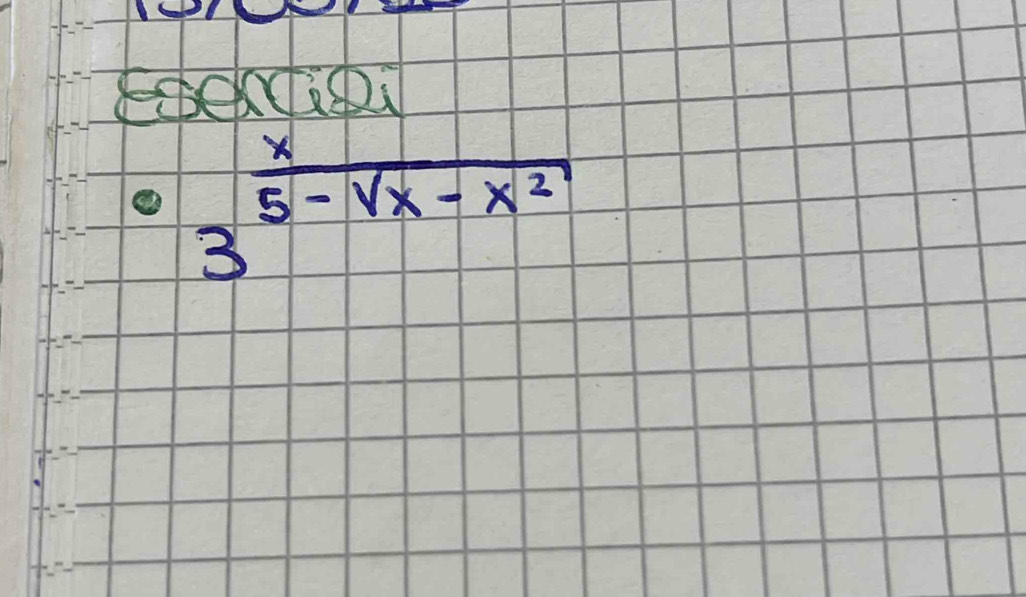 Esercizi
• 3^(x / (5 - √(x - x²)))